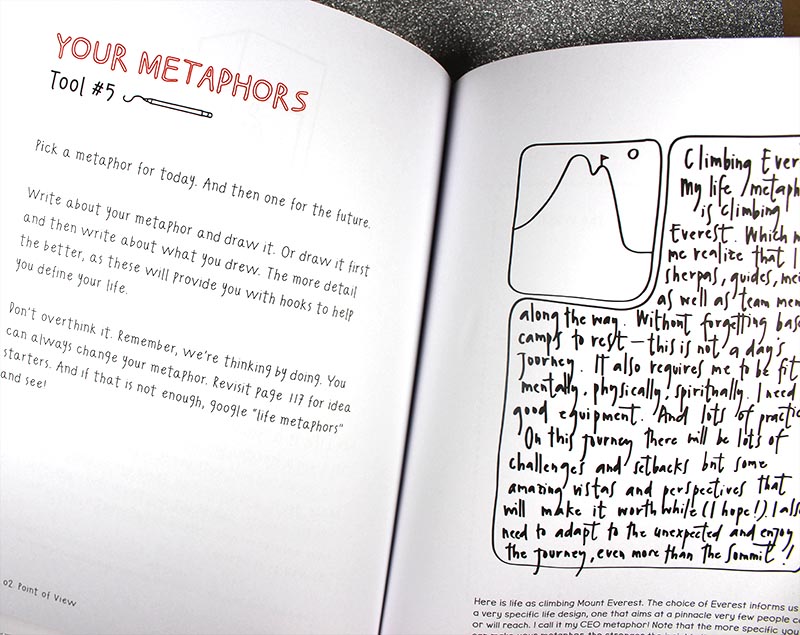 YOUR METAPHORS
Tool #5
Pick a metaphor for today. And then one for the future.
Write about your metaphor and draw it. Or draw it first
and then write about what you drew. The more detail
the better, as these will provide you with hooks to help
you define your life.
Don't overthink it. Remember, we're thinking by doing. You
can always change your metaphor. Revisit page 117 for idea
starters. And if that is not enough, google "life metaphors"
and see!
02 Point of View
Climbing Ever
My life metaph
is climbing
Everest. Which m
me realize that I
sherpas, guides, men
as well as team mem
along the way. Without forgetting base
camps to rest – this is not a day's
journey. It also requires me to be fit
mentally, physically, spiritually. I need
good equipment. And lots of practic
On this journey there will be lots of
challenges and setbacks but some
amazing vistas and perspectives that
will make it worthwhile (I hope!). I also
need to adapt to the unexpected and enjoy
the journey, even more than the summit!
Here is life as climbing Mount Everest. The choice of Everest informs us
a very specific life design, one that aims at a pinnacle very few people c
or will reach. I call it my CEO metaphor! Note that the more specific you